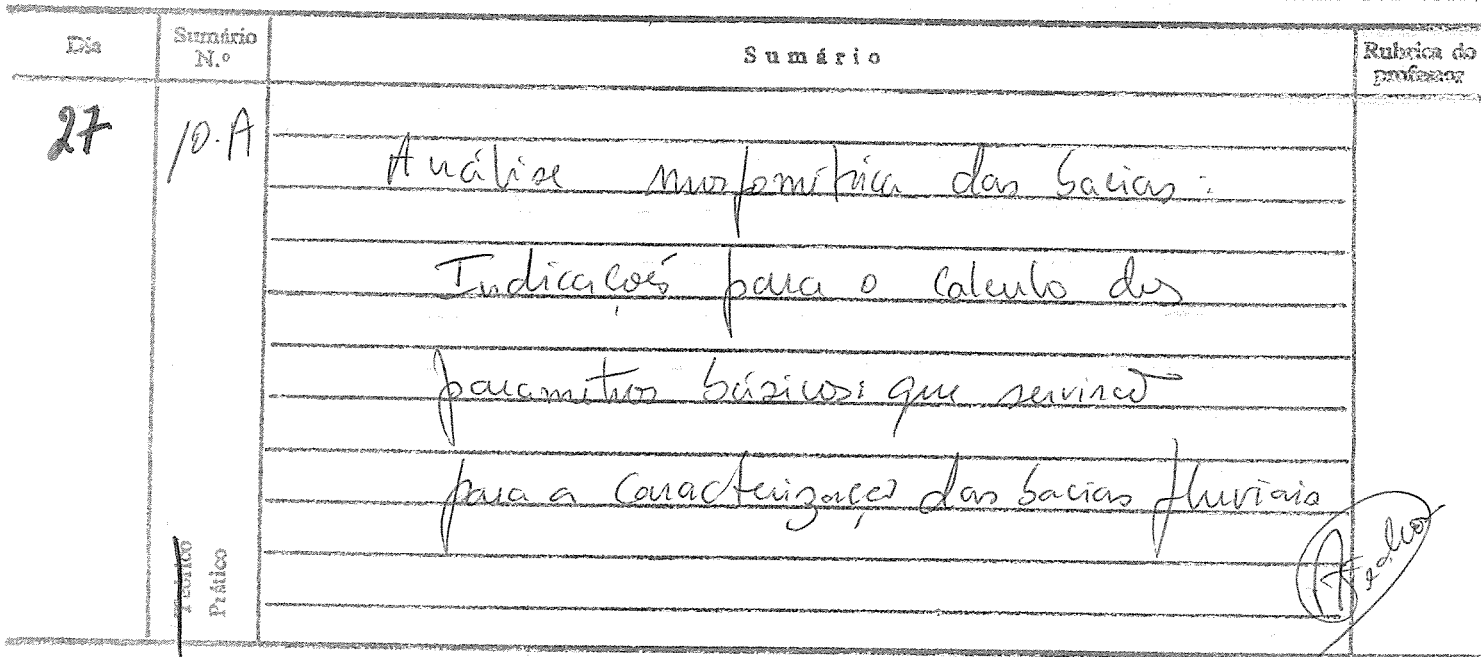 Dia
Sumário N.º
Sumário
Rubrica do professor
27
10.A
Análise morfométrica das bacias:
Indicações para o calculo dos
parametros básicos que servirão
para a caracterização das bacias fluviais
Teórico
Prático